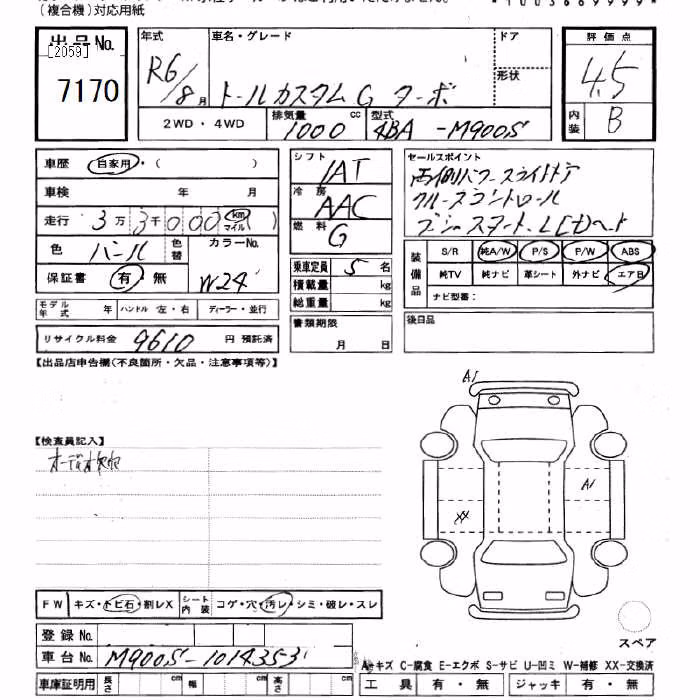 (複合機)対応用紙
*1003669999*
出品No.
[2059]
7170
年式
R6/8月
車名・グレード
トールカスタムG ターボ
ドア
形状
2WD・4WD
排気量
1000 cc
型式
4BA-M900S
評価点
4.5
内装
B
車歴 自家用・( )
車検 年 月
走行 3万3千000 km マイル
色 パール 色替
カラーNo.
W24
保証書 有・無
モデル年式 年 ハンドル 左・右 ディーラー・並行
リサイクル料金 9610 円 預託済
シフト
IAT
冷房
AAC
燃料
G
乗車定員 5 名
積載量 kg
総重量 kg
書類期限
月 日
セールスポイント
両側パワースライドドア
クルーズコントロール
プッシュスタート、LEDヘッド
装備品
S/R 純A/W P/S P/W ABS
純TV 純ナビ 革シート 外ナビ エアB
ナビ型番:
後日品
【出品店申告欄(不良箇所・欠品・注意事項等)】
【検査員記入】
オーディオ欠品
A1
A1
XX
スペア
FW キズ・トビ石・割レX
シート内装 コゲ・穴・汚レ・シミ・破レ・スレ
登録No.
車台No. M900S-1014353
車庫証明用 長さ cm 幅 cm 高さ cm
A-キズ C-腐食 E-エクボ S-サビ U-凹ミ W-補修 XX-交換済
工具 有・無 ジャッキ 有・無